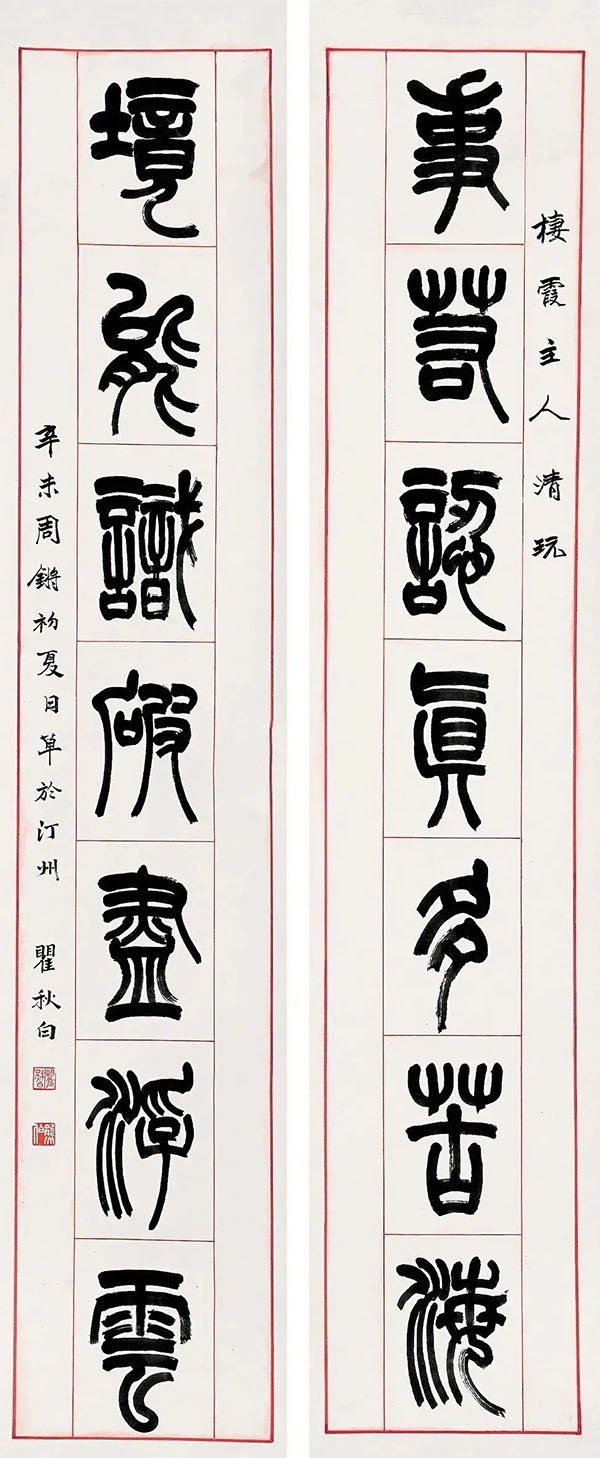 棲霞主人清玩
事若認眞多苦海
境能識破盡浮雲
辛未周鏘初夏日草於汀州 瞿秋白